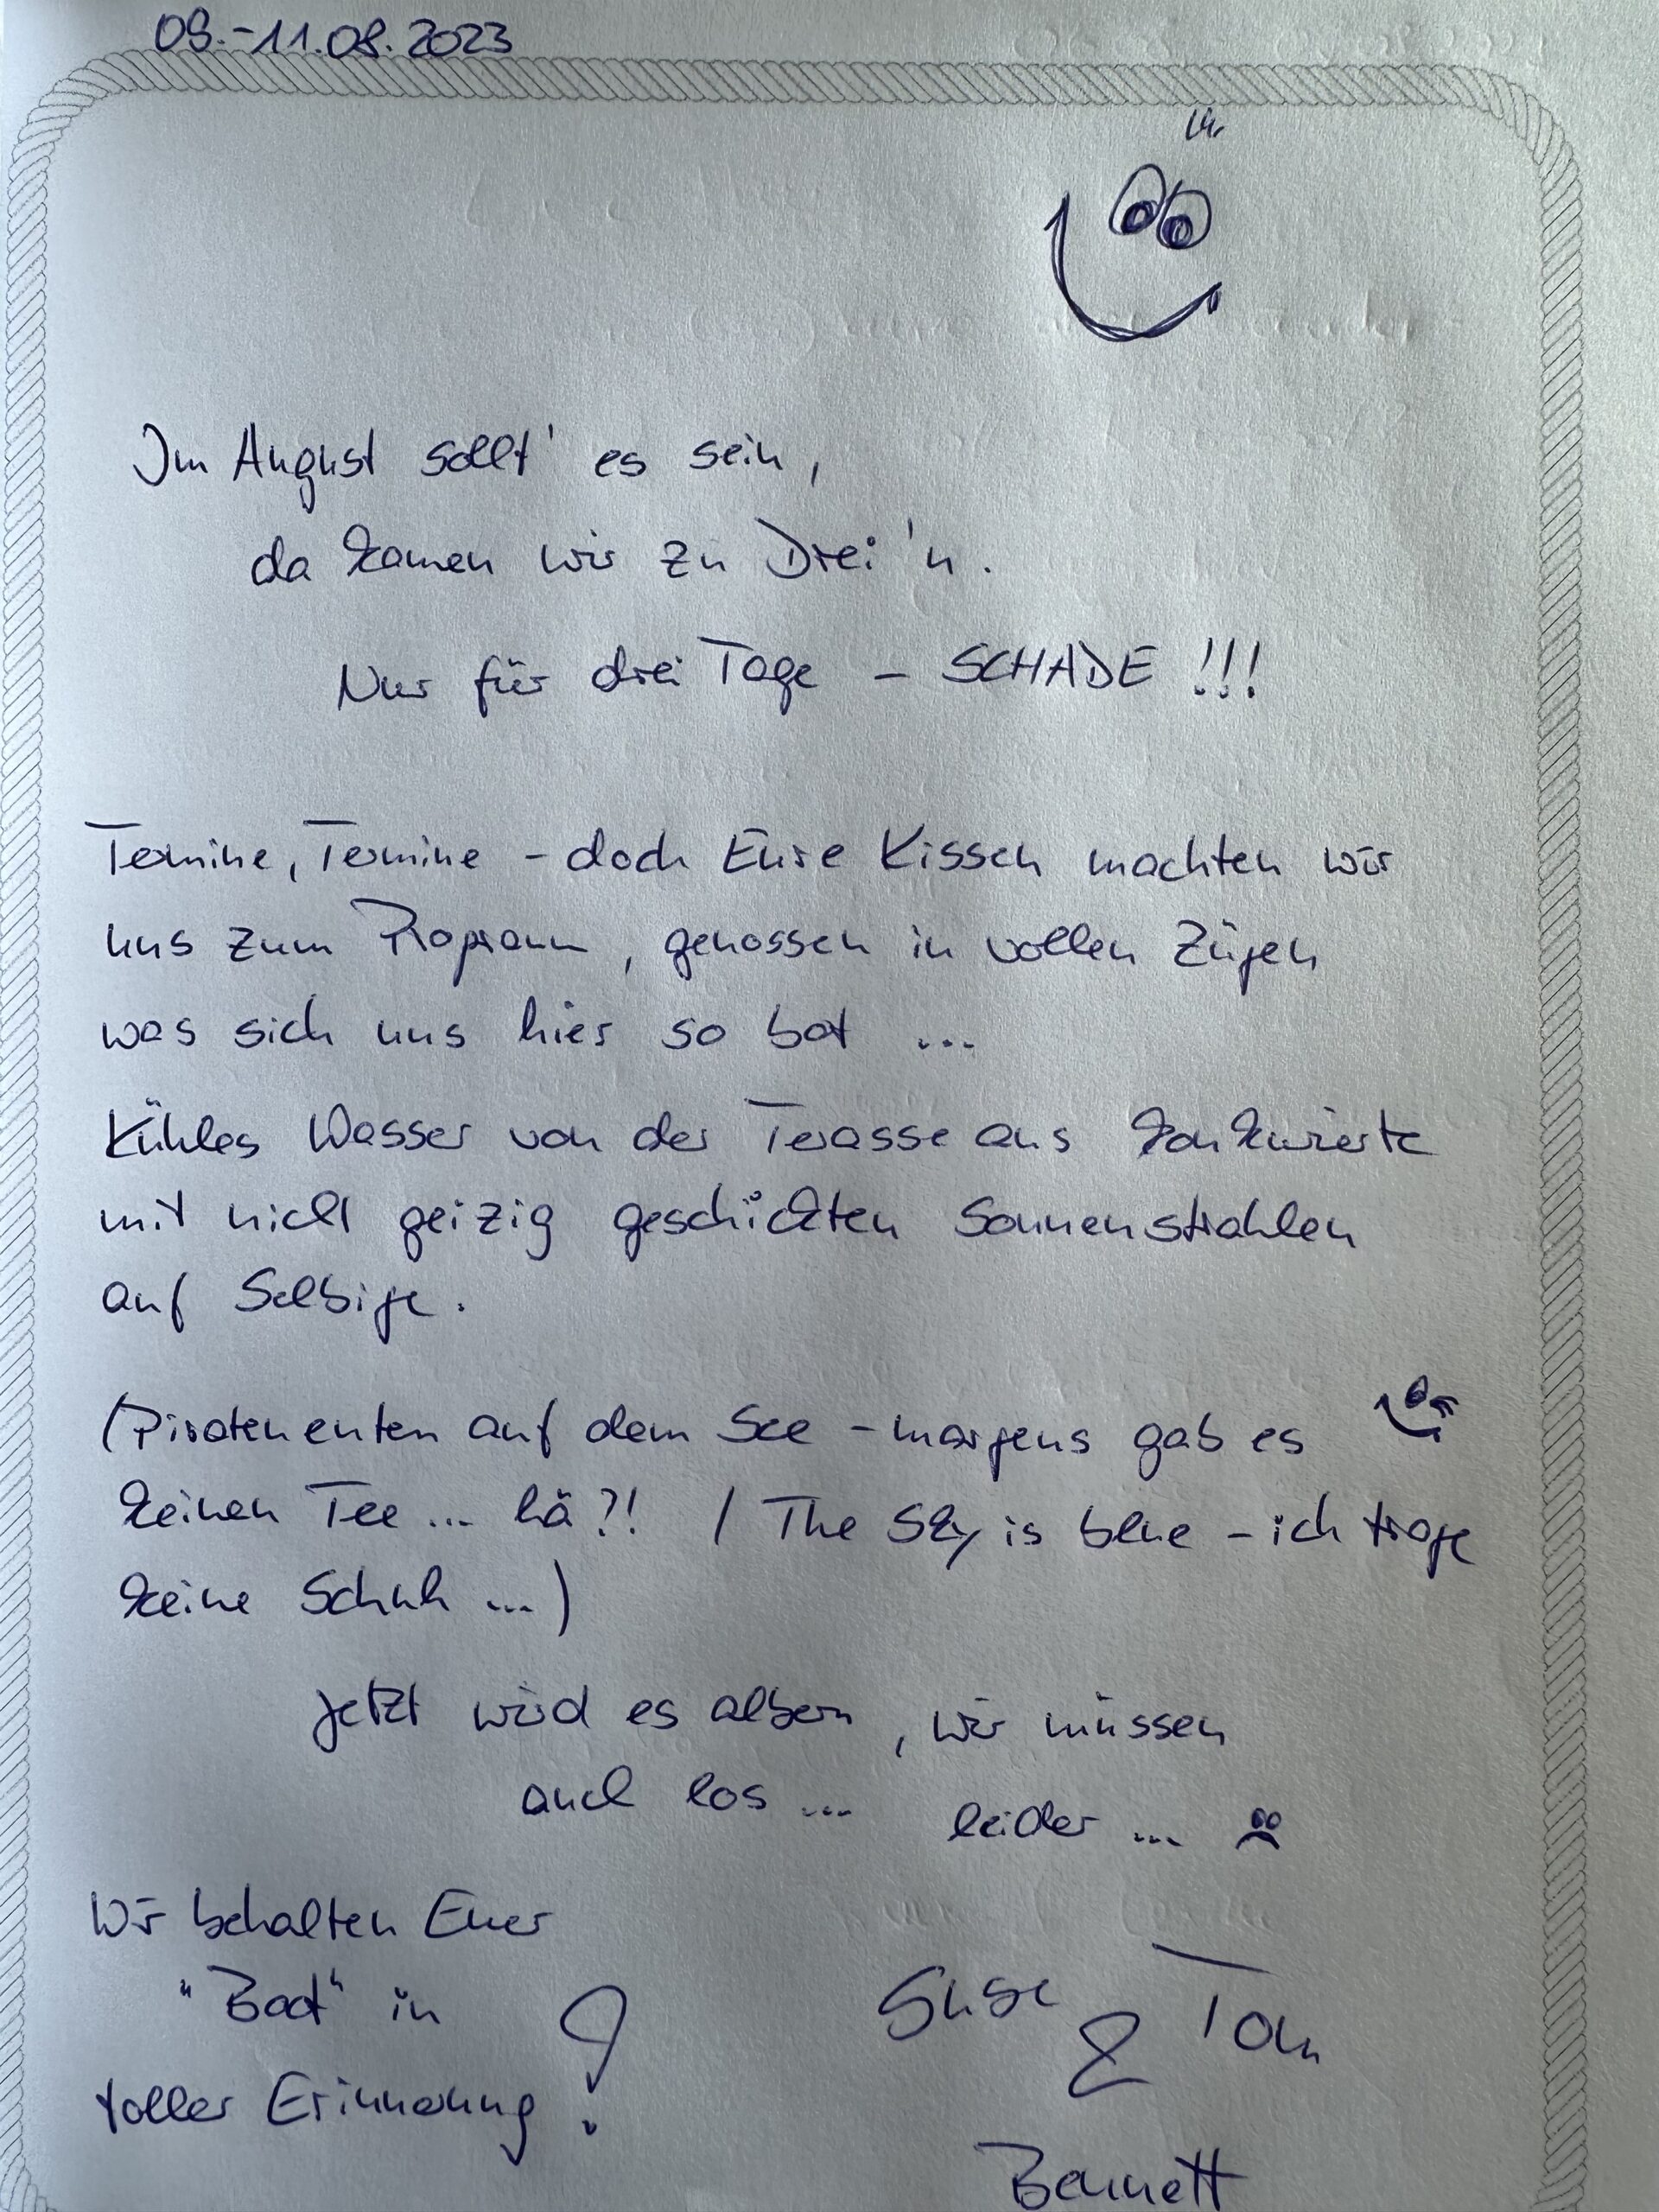 09.-11.08.2023
Im August sollt' es sein,
da kamen wir zu Drei'n.
Nur für drei Tage - SCHADE !!!
Termine, Termine - doch Eure Kissen machten wir
uns zum Programm, genossen in vollen Zügen
was sich uns hier so bot ...
Kühles Wasser von der Terasse aus konkurierte
mit nicht geizig geschickten Sonnenstrahlen
auf Selbige.
(Piratenenten auf dem See - morgens gab es
keinen Tee ... hä?! / The Sky is blue - ich trage
keine Schuh ...)
Jetzt wird es albern, wir müssen
auch los ... leider ...
Wir behalten Euer
"Boot" in
toller Erinnerung!
Suse & Tom
Bennett